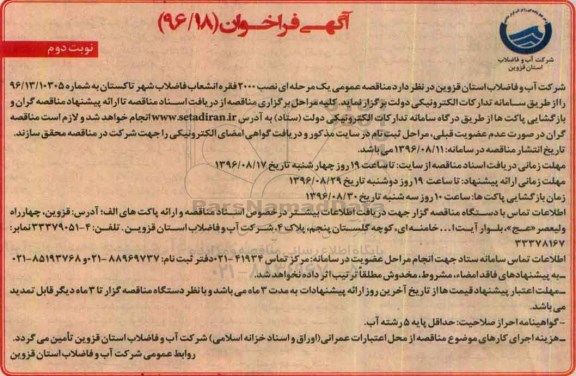 آگهی فراخوان (۹۶/۱۸)
شرکت آب و فاضلاب
استان قزوین
نوبت دوم
شرکت آب و فاضلاب استان قزوین در نظر دارد مناقصه عمومی یک مرحله ای نصب ۲۰۰۰ فقره انشعاب فاضلاب شهر تاکستان به شماره ۹۶/۱۳/۱۰۳۰۵
را از طریق سامانه تدارکات الکترونیکی دولت برگزار نماید. کلیه مراحل برگزاری مناقصه از دریافت اسناد مناقصه تا ارائه پیشنهاد مناقصه گران و
بازگشایی پاکت ها از طریق درگاه سامانه تدارکات الکترونیکی دولت (ستاد) به آدرس www.setadiran.ir انجام خواهد شد و لازم است مناقصه
گران در صورت عدم عضویت قبلی، مراحل ثبت نام در سایت مذکور و دریافت گواهی امضای الکترونیکی را جهت شرکت در مناقصه محقق سازند.
تاریخ انتشار مناقصه در سامانه: ۱۳۹۶/۰۸/۱۱ می باشد.
مهلت زمانی دریافت اسناد مناقصه از سایت: تا ساعت ۱۹ روز چهار شنبه تاریخ ۱۳۹۶/۰۸/۱۷
مهلت زمانی ارائه پیشنهاد: تا ساعت ۱۹ روز دوشنبه تاریخ ۱۳۹۶/۰۸/۲۹
زمان بازگشایی پاکت ها: ساعت ۱۰ روز سه شنبه تاریخ ۱۳۹۶/۰۸/۳۰
اطلاعات تماس با دستگاه مناقصه گزار جهت دریافت اطلاعات بیشتر در خصوص اسناد مناقصه و ارائه پاکت های الف: آدرس: قزوین، چهارراه
ولیعصر «عج»، بلوار آیت ا... خامنه ای، کوچه گلستان پنجم، پلاک ۴، شرکت آب و فاضلاب استان قزوین. تلفن: ۴-۳۳۳۷۹۰۵۱ نمابر:
۳۳۳۷۸۱۶۷
اطلاعات تماس سامانه ستاد جهت انجام مراحل عضویت در سامانه: مرکز تماس ۴۱۹۳۴-۰۲۱ دفتر ثبت نام: ۸۸۹۶۹۷۳۷-۰۲۱ و ۸۵۱۹۳۷۶۸-۰۲۱
- به پیشنهادهای فاقد امضاء، مشروط، مخدوش مطلقاً ترتیب اثر داده نخواهد شد.
- مهلت اعتبار پیشنهاد قیمت ها از تاریخ آخرین روز ارائه پیشنهادات به مدت ۳ ماه می باشد و با نظر دستگاه مناقصه گزار تا ۳ ماه دیگر قابل تمدید
می باشد.
- گواهینامه احراز صلاحیت: حداقل پایه ۵ رشته آب.
- هزینه اجرای کارهای موضوع مناقصه از محل اعتبارات عمرانی (اوراق و اسناد خزانه اسلامی) شرکت آب و فاضلاب استان قزوین تأمین می گردد.
روابط عمومی شرکت آب و فاضلاب استان قزوین